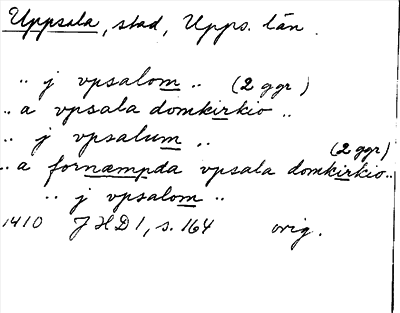 Uppsala, stad, Upps. län.
.. j vpsalom .. (2 ggr)
.. a vpsala domkirkio ..
.. j vpsalum .. (2 ggr)
.. a fornæmpda vpsala domkirkio..
.. j vpsalom ..
1410 JHD 1, s. 164 orig.